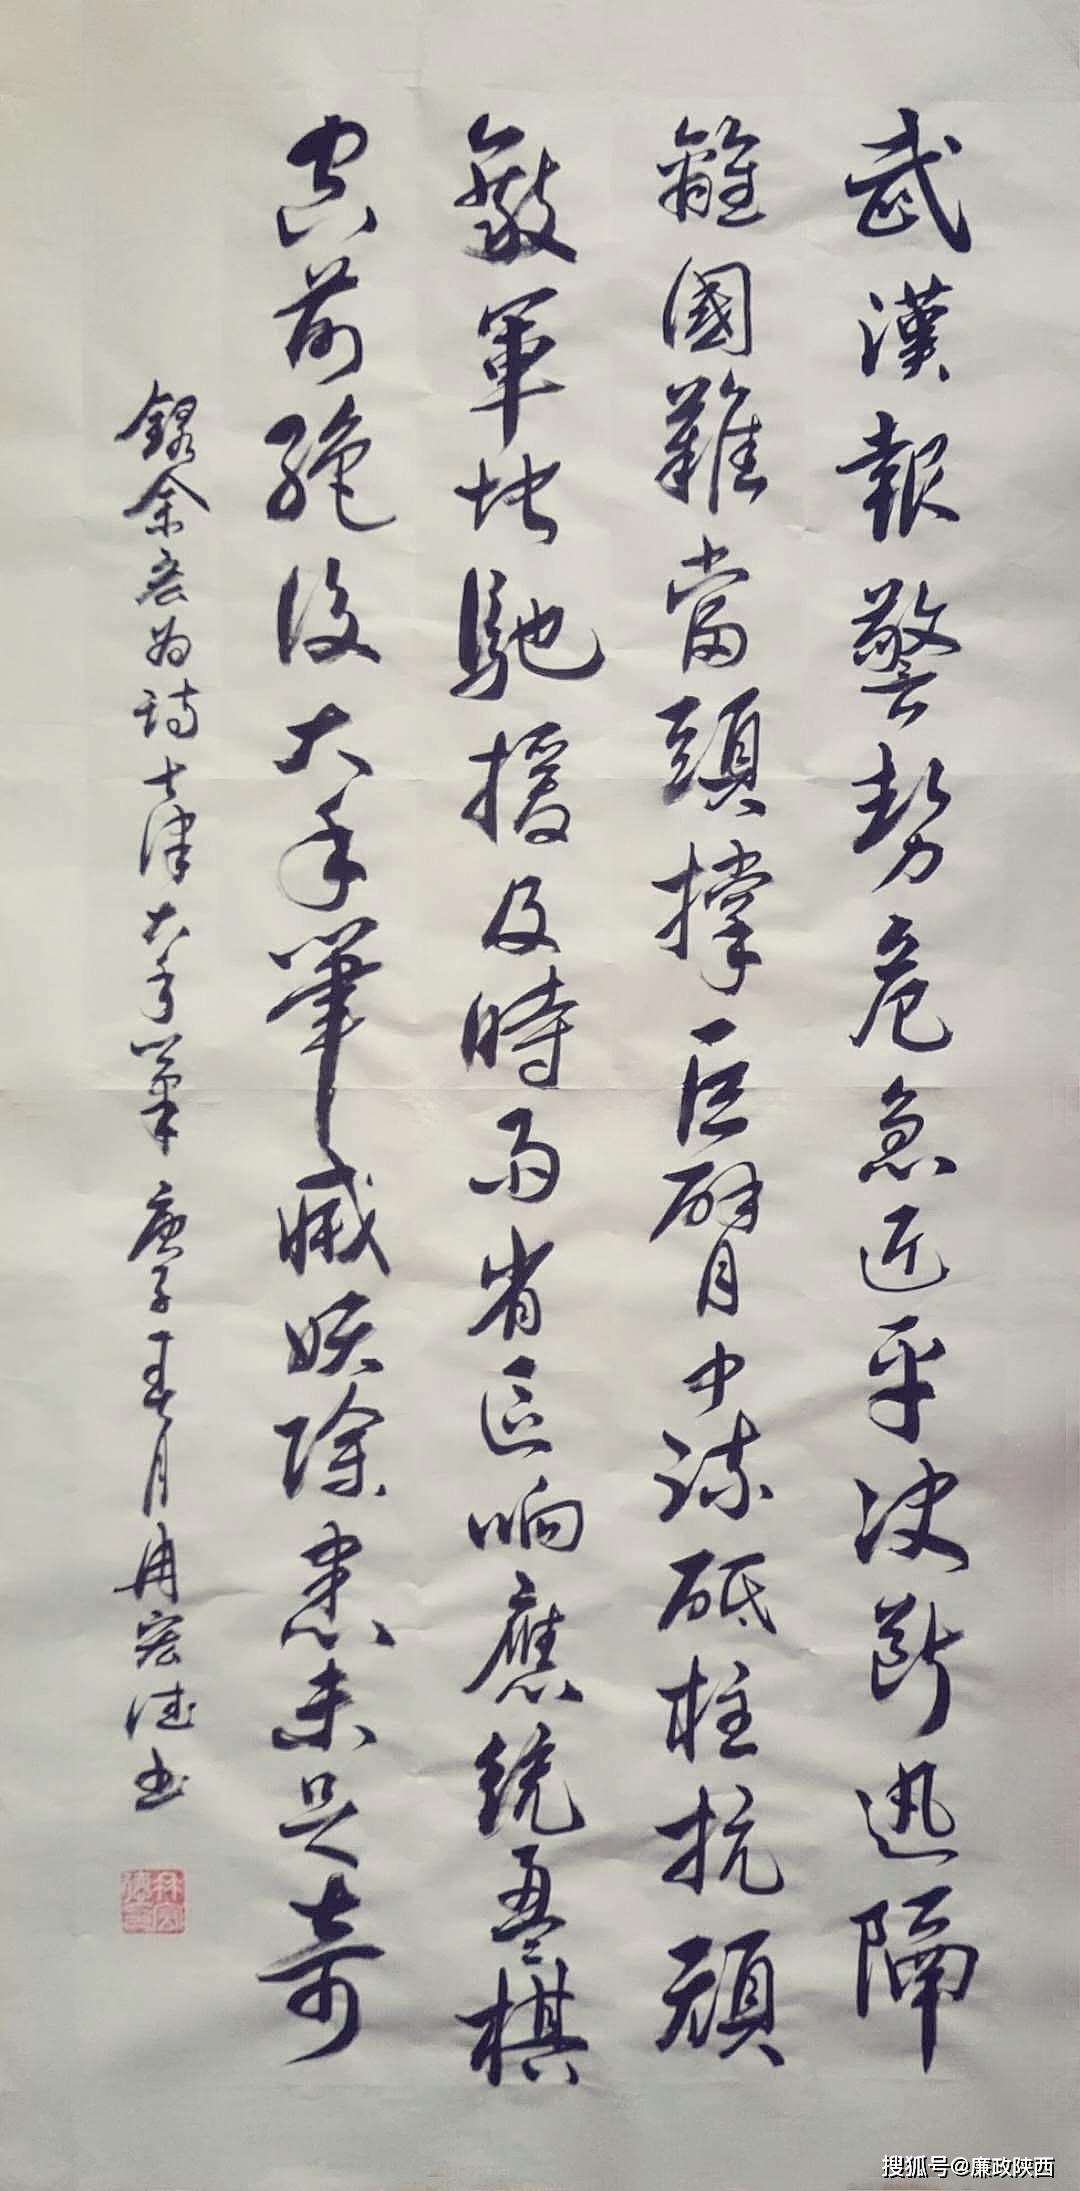 武漢報警勢危急近平決斷迅隔
離國難當頭撐巨臂中流砥柱抗頑
敵軍地馳援及時雨省區响應統一棋
空前絕後大手筆滅妖除患未足奇
錄余宏為詩七律大手筆庚子春月冉宏德书
搜狐号@廉政陕西